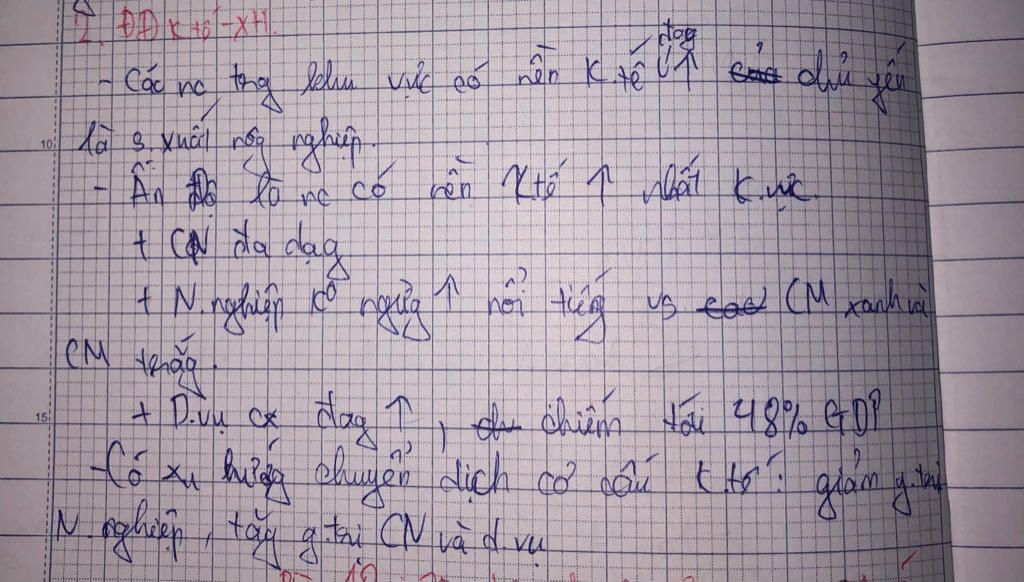 2. ĐĐ K tế - XH.
- Các nc trg khu vực có nền K.tế đag ↑ chủ yếu
là s.xuất nôg nghiệp.
- Ấn Độ là nc có nền Ktế ↑ nhất K.vực.
+ CN đa dạg
+ N.nghiệp kô ngừg ↑ nổi tiếg vs CM xanh và
CM trắg.
+ D.vụ cx đag ↑, chiếm tới 48% GDP
- Có xu hướg chuyển dịch cơ cấu K.tế: giảm g.trị
N.nghiệp, tăg g.trị CN và d.vụ